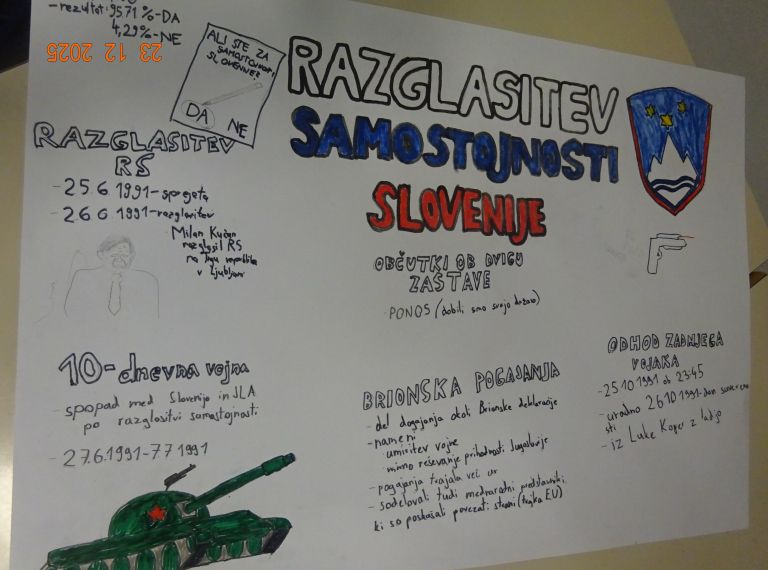 - rezultat: 95.71 % - DA
4,29% - NE
23 12 2025
ALI STE ZA
SAMOSTOJNOST
SLOVENIJE?
DA
NE
RAZGLASITEV
SAMOSTOJNOSTI
SLOVENIJE
RAZGLASITEV
RS
- 25 6 1991 - sprejeta
- 26 6 1991 - razglasitev
Milan Kučan
razglasil RS
na trgu republike
v Ljubljani
OBČUTKI OB DVIGU
ZASTAVE
- PONOS (dobili smo svojo državo)
10-dnevna vojna
- spopad med Slovenijo in JLA
po razglasitvi samostojnosti
- 27.6.1991-7.7 1991
BRIONSKA POGAJANJA
- del dogajanja okoli Brionske deklaracije
- nameni
umiritev vojne
mirno reševanje prihodnosti Jugoslavije
- pogajanja trajala več ur
- sodelovali tudi mednarodni predstavniki
ki so poskušali povezati strani (trojka EU)
ODHOD ZADNJEGA
VOJAKA
- 25 10 1991 ob 23:45
- uradno 26 10 1991 - dan suvereno
sti
- iz Luke Koper z ladjo